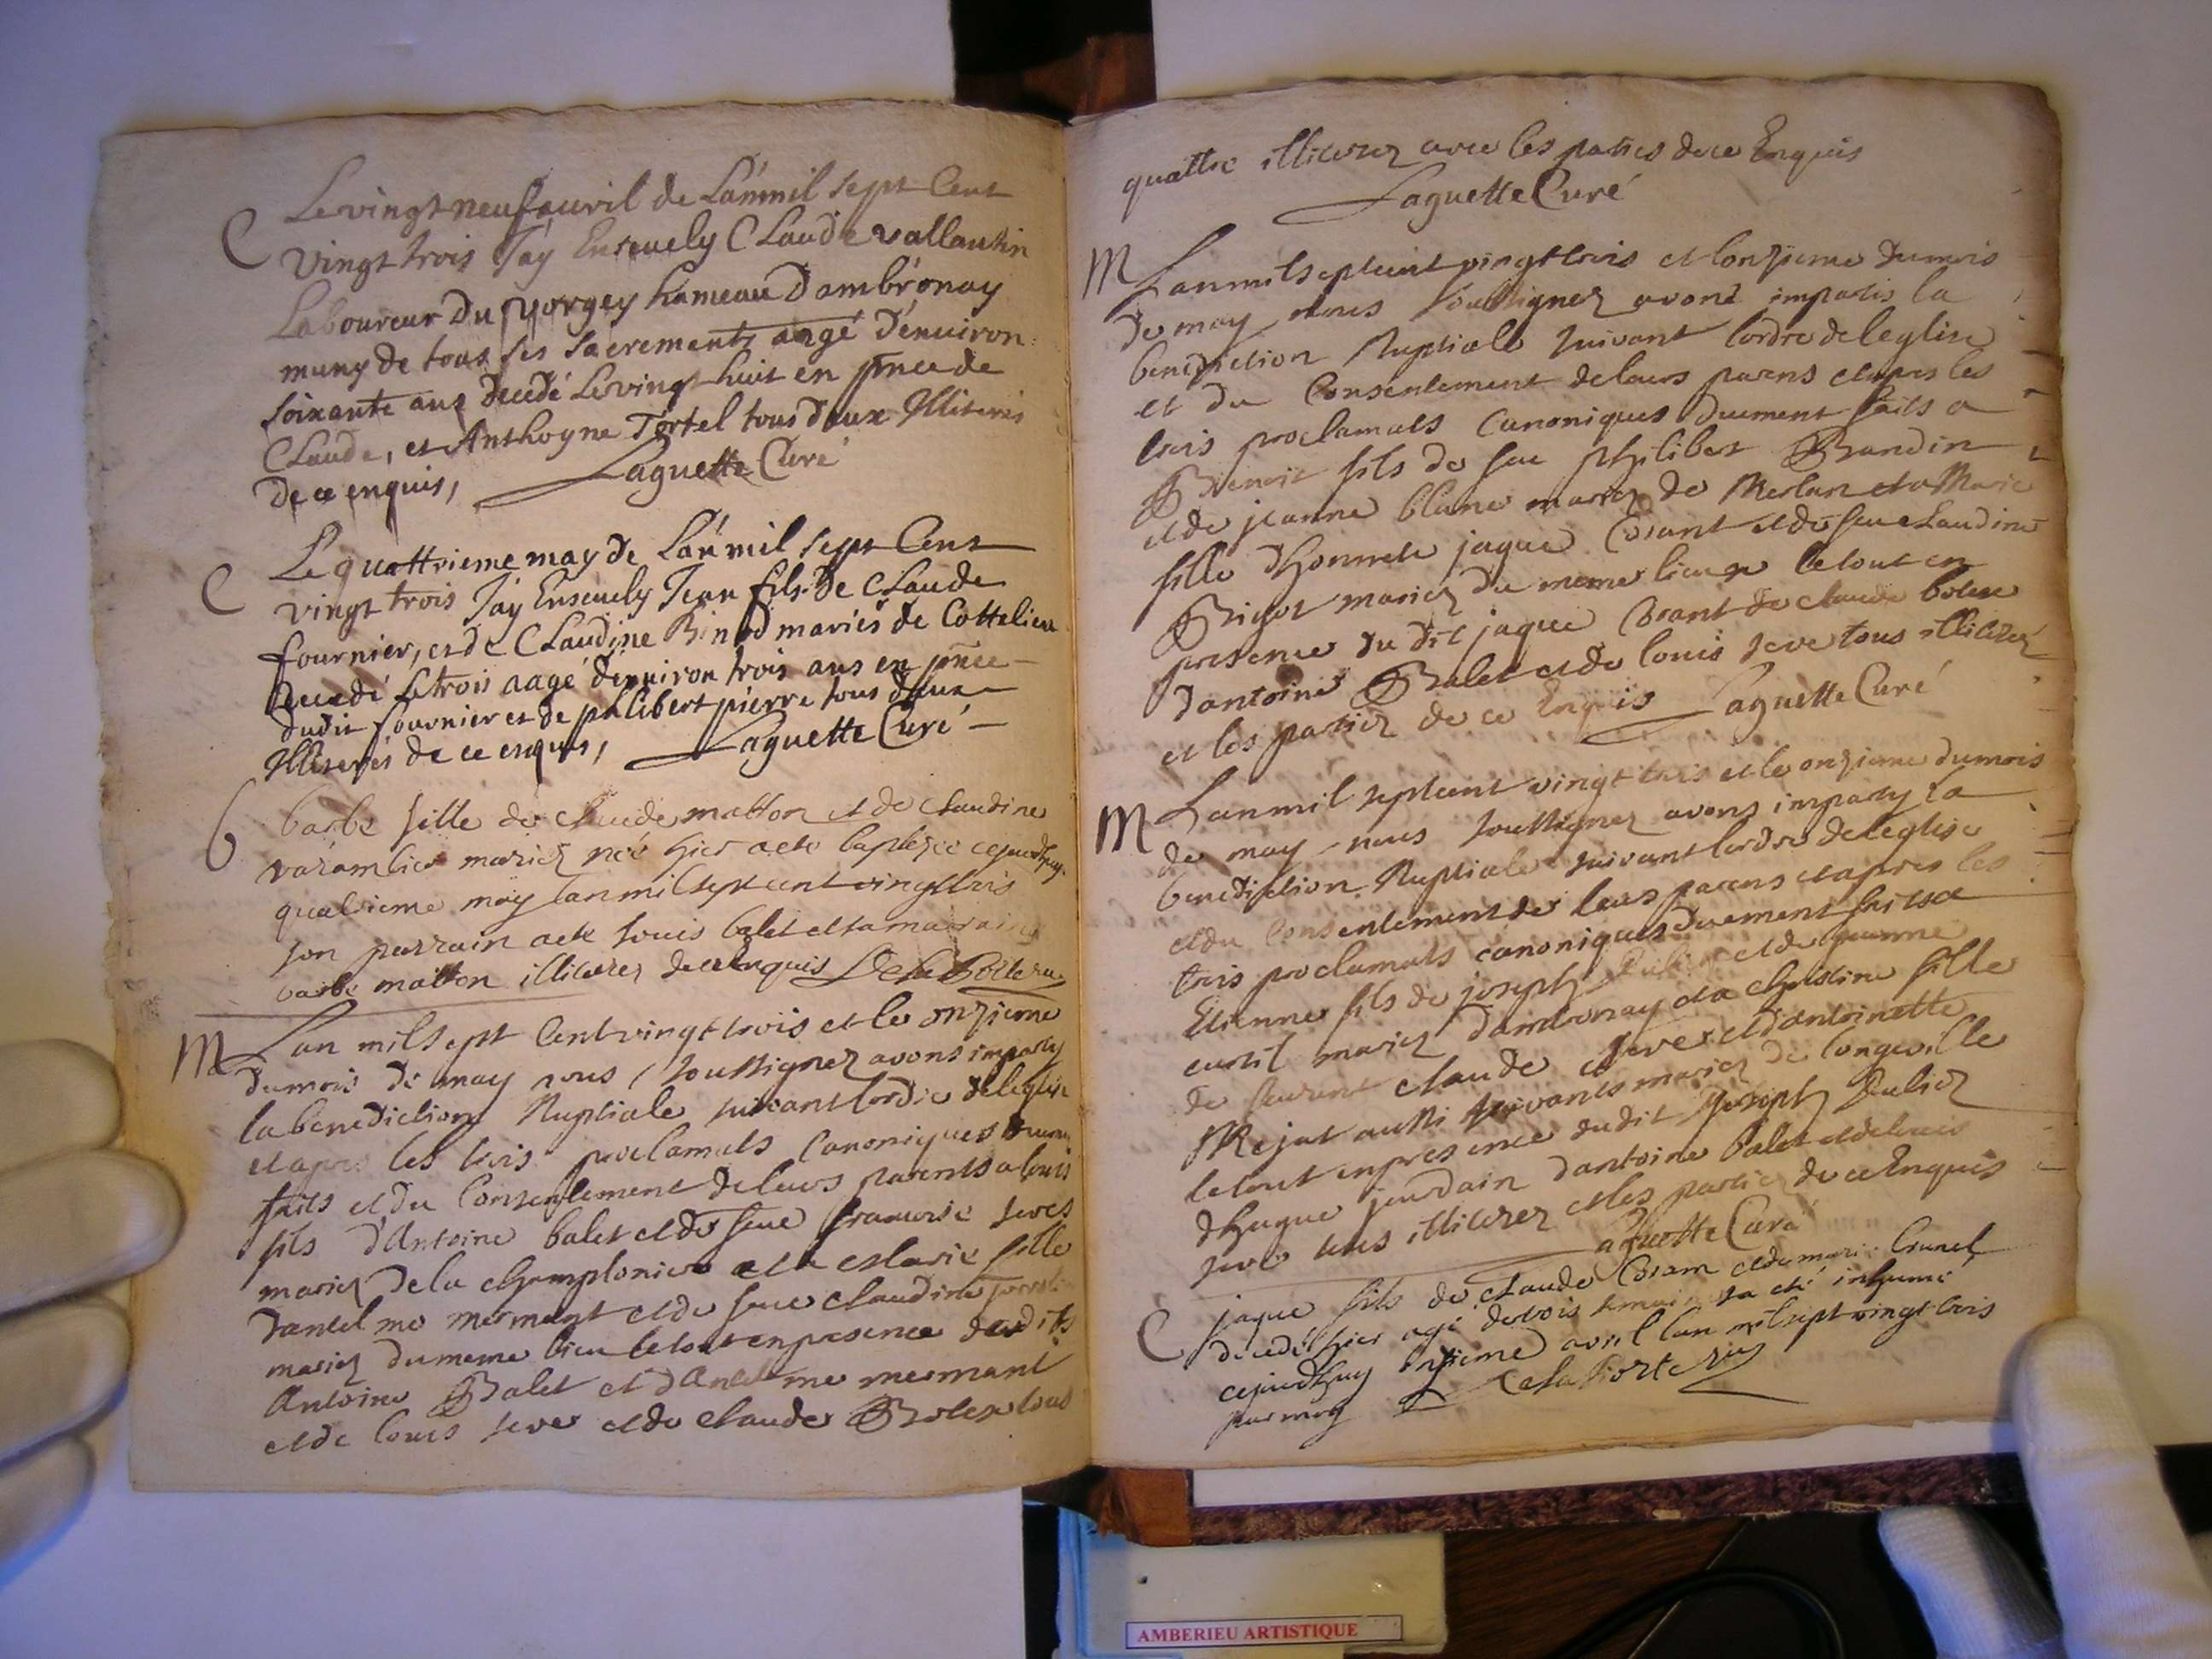 C Le vingt neuf auril de Lan mil sept Cent
vingt trois Jay Enseuely CLaude vallantin
Laboureur Du vorgey hameau D'ambronay
muny de tous ses sacrements aagé D'enuiron
soixante ans Decedé Le vingt huit en pnce de
CLaude, et Anthoyne Tortel tous Deux Illiterés
De ce enquis, Laguette Curé
C Le quattrieme may De Lan mil sept Cens
vingt trois Jay Enseuely Jean fils De CLaude
fournier, et de CLaudine mariés de Cottelieu
Decedé Le trois aagé d'enuiron trois ans en pnce
dudit fournier et de philibert pierre tous deux
Illiterés de ce enquis, Laguette Curé
b barbe fille de claude matton et de claudine
varamblier mariez née hier a ete baptizee cejourdhuy
quatrieme may lan mil sept cent vingt trois
son parrain a ete louis balet et sa marraine
barbe matton illiterez de ce Enquis
M Lan mil sept Cent vingt trois et le onzieme
du mois de may nous soussignez avons imparty
la benediction Nuptiale suivant lordre de leglise
et apres les trois proclamats Canoniques
faits et du Consentement de leurs parents a louis
fils d'Antoine balet et de feue francoise seves
mariez de la championiere et a Marie fille
d'anselme mermant et de feue claudine
mariez du meme lieu le tout en presence desdits
Antoine Balet et d'Anselme mermant
et de louis seve et de claude Bolex tous
quattre illiterez avec les parties de ce Enquis
Laguette Curé
M Lan mil sept cent vingt trois et lonzieme du mois
de may nous soussignez avons impartis la
benediction Nuptiale suivant lordre de leglise
et du Consentement de leurs parens et apres les
trois proclamats Canoniques duement faits a
Benoit fils de feu philibert Brandin
et de jeanne blanc mariez de Merlan et a Marie
fille d'honnete jaque Corant et de feue claudine
Brigot mariez du meme lieu le tout en
presence du dit jaque Corant de claude bolex
d'antoine Balet et de louis seve tous illiterez
et les parties de ce Enquis Laguette Curé
M Lan mil sept cent vingt trois et le onzieme du mois
de may nous soussignez avons imparty la
benediction Nuptiale suivant lordre de leglise
et du Consentement de leurs parens et apres les
trois proclamats canoniques duement faits a
Etienne fils de joseph et de jeanne
curtil mariez d'ambronay et a christine fille
de claude seve et d'antoinette
Mejat aussi vivants mariez de longeville
le tout en presence dudit joseph
d'hugue jourdain d'antoine balet et de louis
seve tous illiterez et les parties de ce Enquis
Laguette Curé
C jaque fils de claude Coram et de marie brunet
decedé hier agé de trois semaines a eté inhumé
cejourdhuy onzieme avril lan mil sept vingt trois
par moy
AMBERIEU ARTISTIQUE